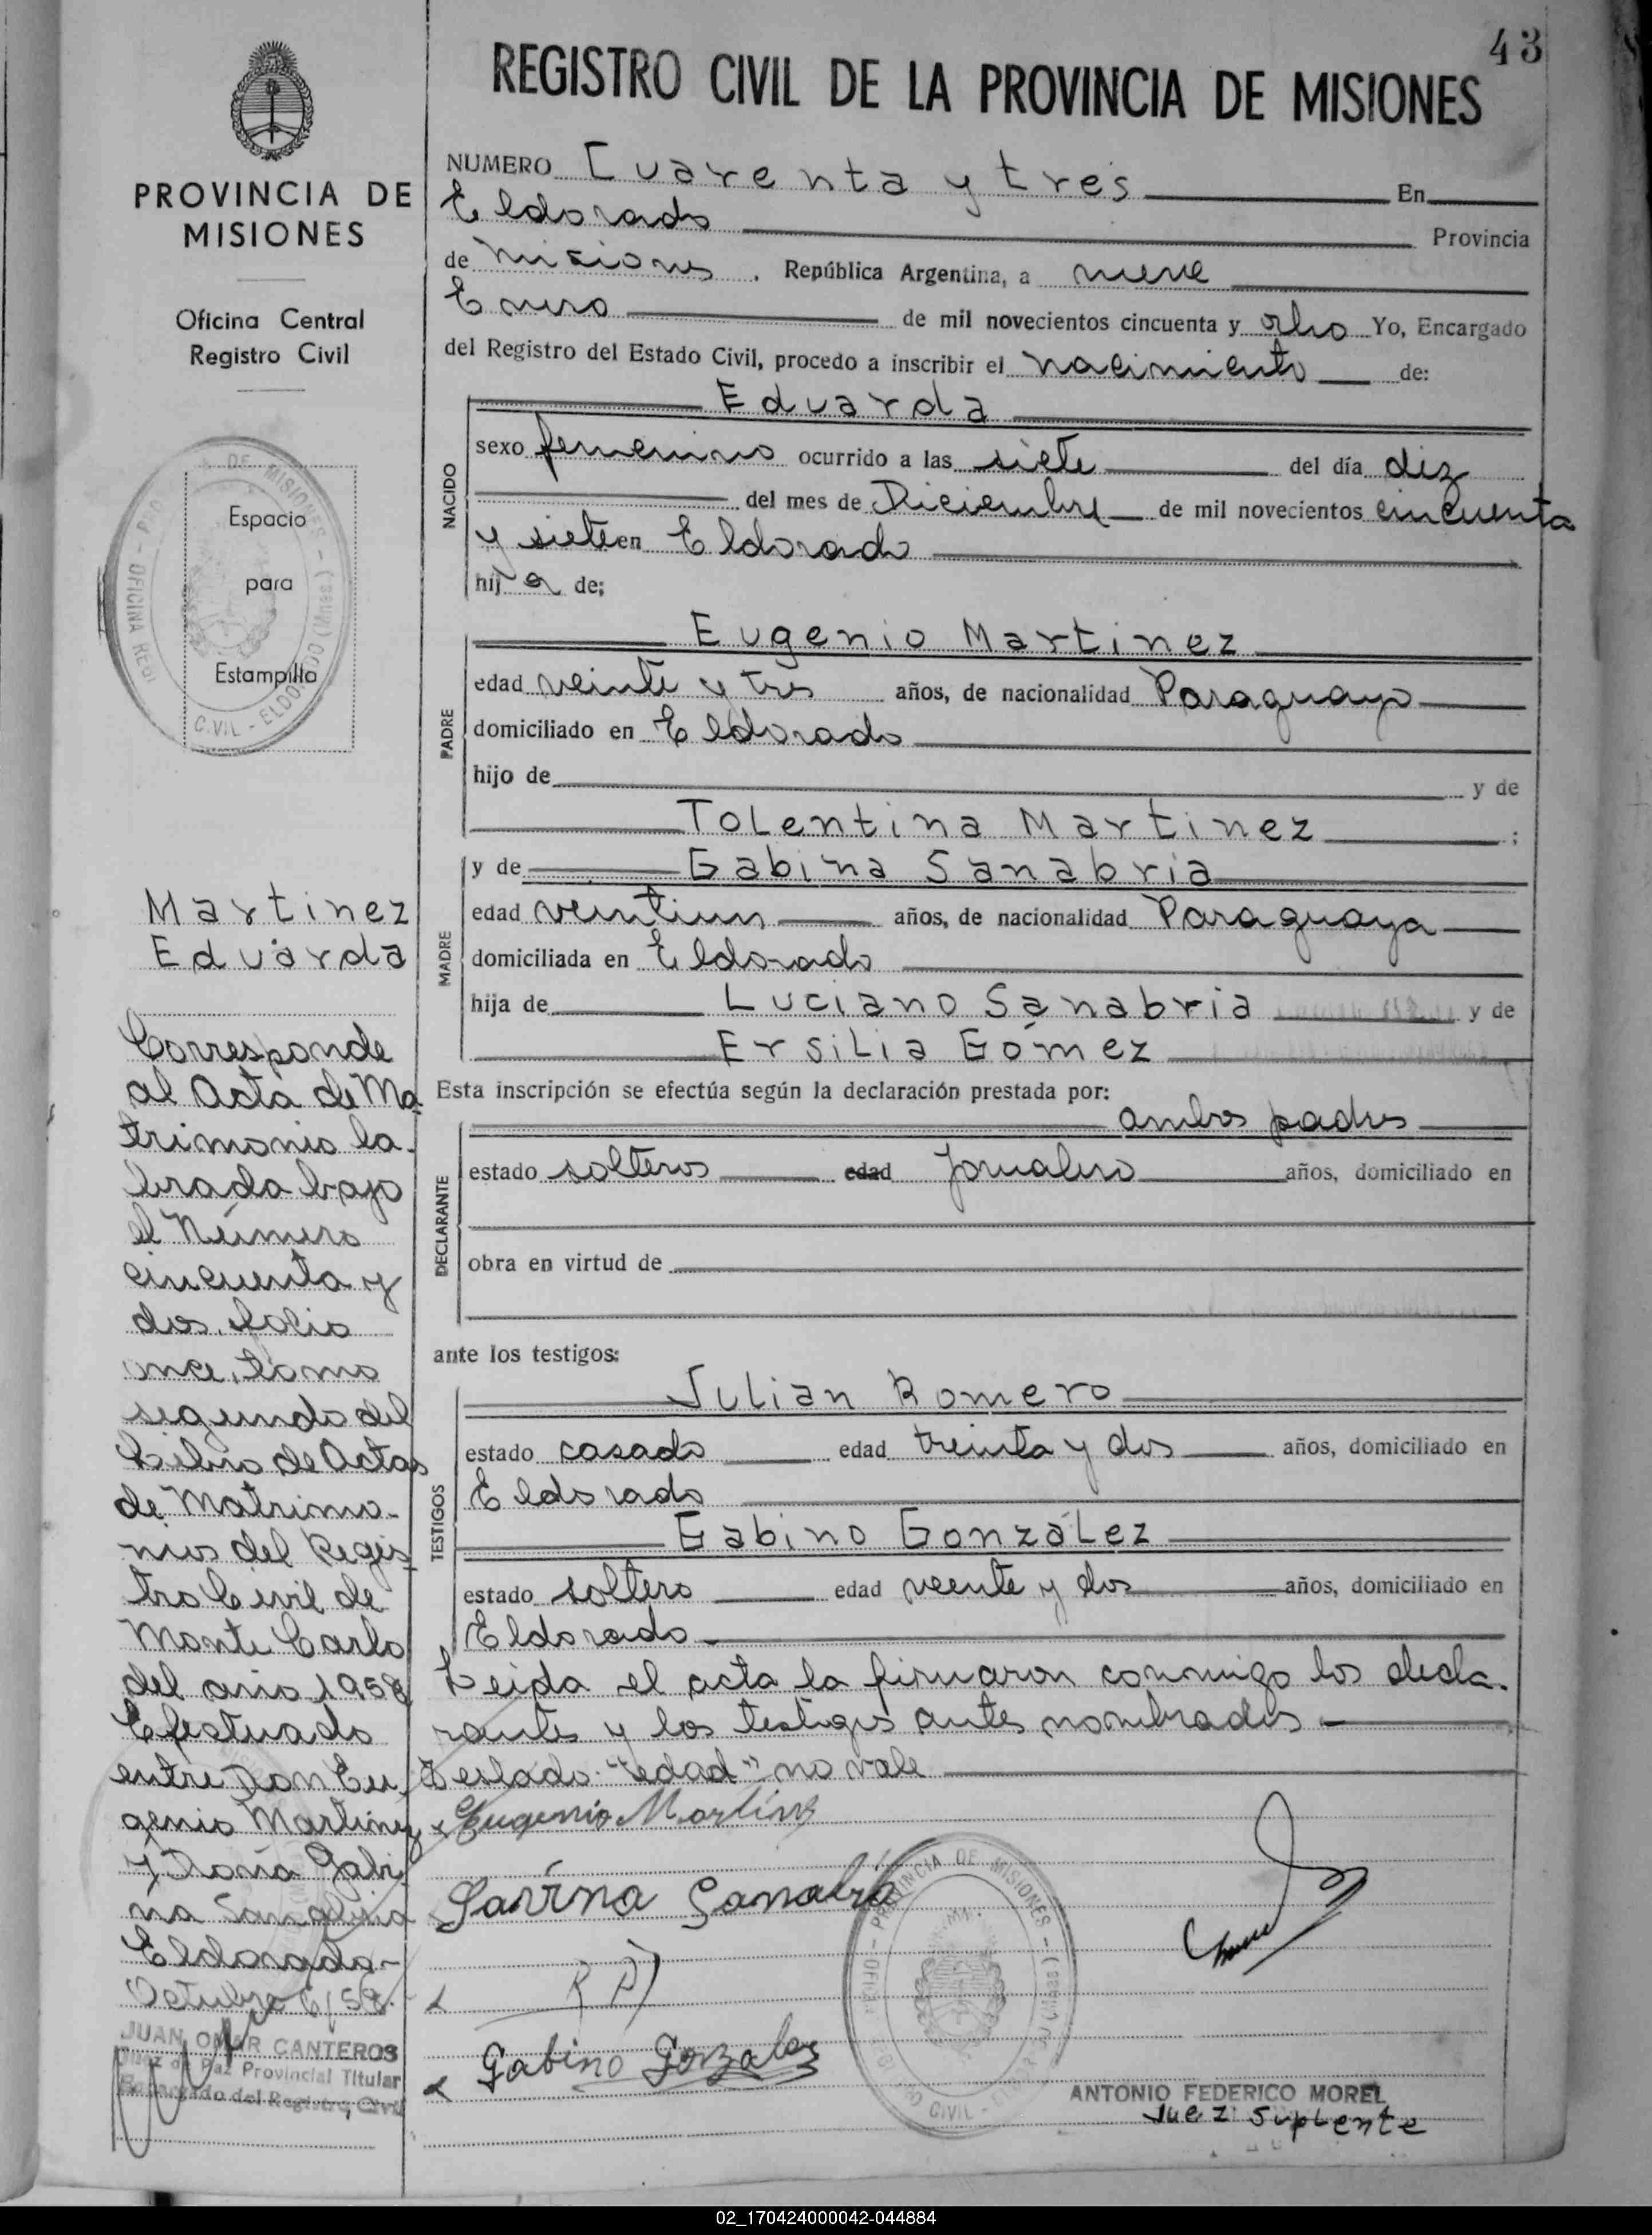 43
REGISTRO CIVIL DE LA PROVINCIA DE MISIONES
PROVINCIA DE
MISIONES
Oficina Central
Registro Civil
Espacio
para
Estampilla
Martinez
Eduarda
Corresponde
al Acta de Ma
trimonio la-
brada bajo
el Número
cincuenta y
dos, folio
once, tomo
segundo del
Libro de Actas
de Matrimo-
nios del Regis
tro Civil de
Monte Carlo
del año 1958
Efectuado
entre Don Eu
genio Martinez
y Doña Gabi
na Sanabria
Eldorado-
Octubre 6/58.
JUAN OMAR CANTEROS
Juez de Paz Provincial Titular
Encargado del Registro Civil
NUMERO Cuarenta y tres En
Eldorado Provincia
de Misiones . República Argentina, a nueve
Enero de mil novecientos cincuenta y ocho Yo, Encargado
del Registro del Estado Civil, procedo a inscribir el nacimiento de:
NACIDO
Eduarda
sexo femenino ocurrido a las siete del día diez
del mes de Diciembre de mil novecientos cincuenta
y siete en Eldorado
hija de;
PADRE
Eugenio Martinez
edad veinte y tres años, de nacionalidad Paraguayo
domiciliado en Eldorado
hijo de y de
Tolentina Martinez ;
MADRE
y de Gabina Sanabria
edad veintiun años, de nacionalidad Paraguaya
domiciliada en Eldorado
hija de Luciano Sanabria y de
Ersilia Gómez
Esta inscripción se efectúa según la declaración prestada por:
DECLARANTE
ambos padres
estado solteros edad Jornalero años, domiciliado en
obra en virtud de
ante los testigos:
TESTIGOS
Julian Romero
estado casado edad treinta y dos años, domiciliado en
Eldorado
Gabino González
estado soltero edad veente y dos años, domiciliado en
Eldorado
Leida el acta la firmaron conmigo los decla-
rantes y los testigos antes nombrados
Testado "edad" no vale
Eugenio Martinez
Savina Sanabria
Gabino Gonzalez
PROVINCIA DE MISIONES
CIVIL
ANTONIO FEDERICO MOREL
Juez Suplente
02_170424000042-044884